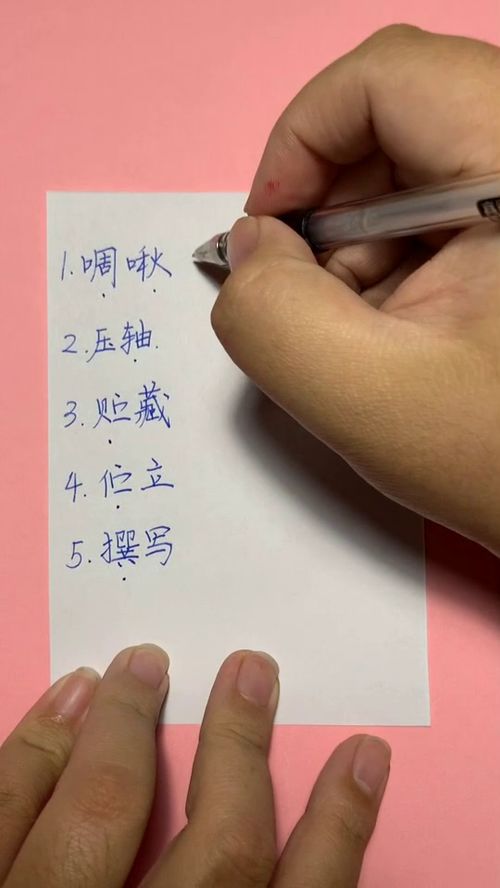 1.啁啾
2.压轴.
3.贮藏
4.伫立
5.撰写